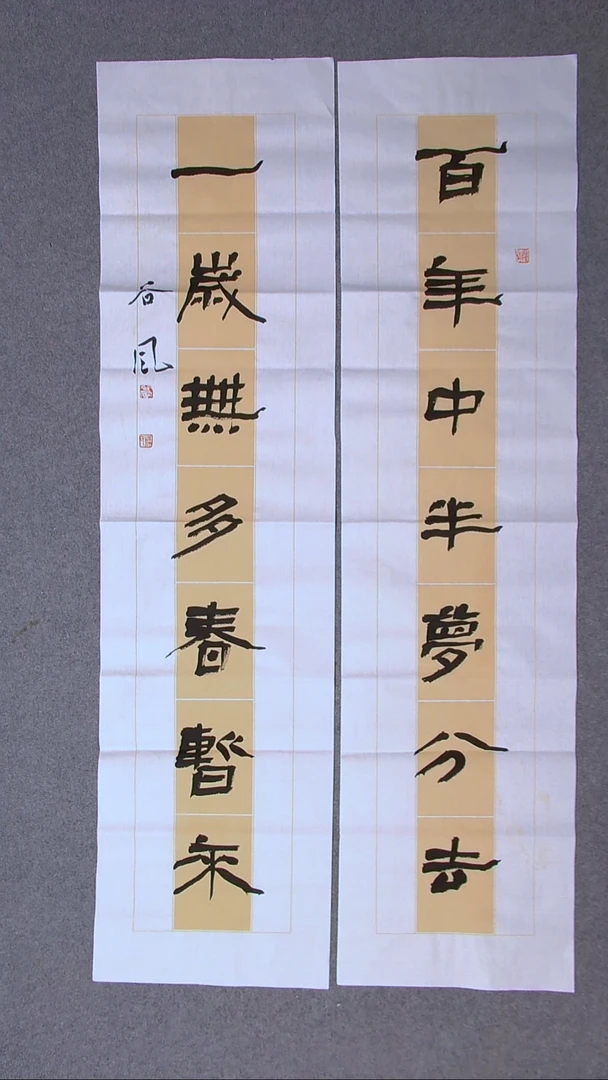 百年中半夢分去
一歲無多春暫來
谷風